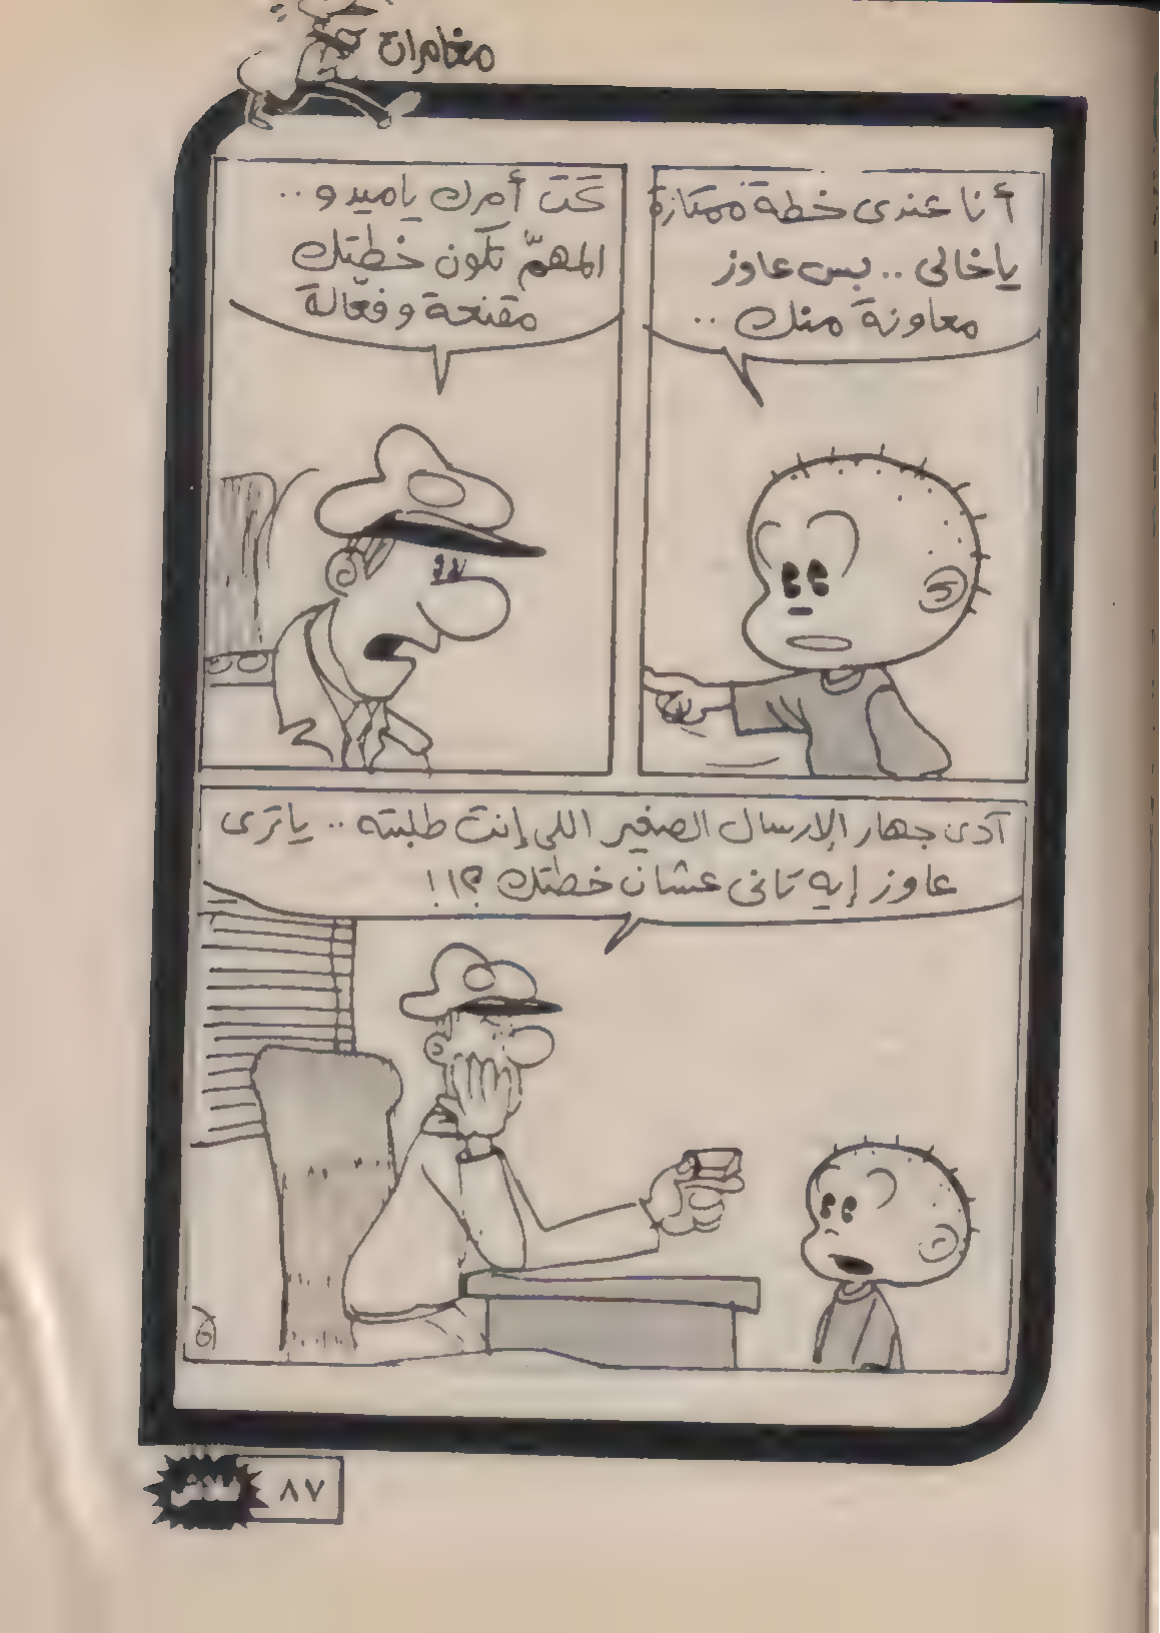 مغامرات
أنا عندى خطة ممتازة
ياخالى .. بس عاوز
معاونة منك ..
تحت أمرك ياميدو ..
المهمّ تكون خطتك
مقنعة وفعّالة
آدى جهاز الإرسال الصغير اللى إنت طلبته .. ياترى
عاوز إيه تانى عشان خطتك ؟!!
فلاش
٨٧